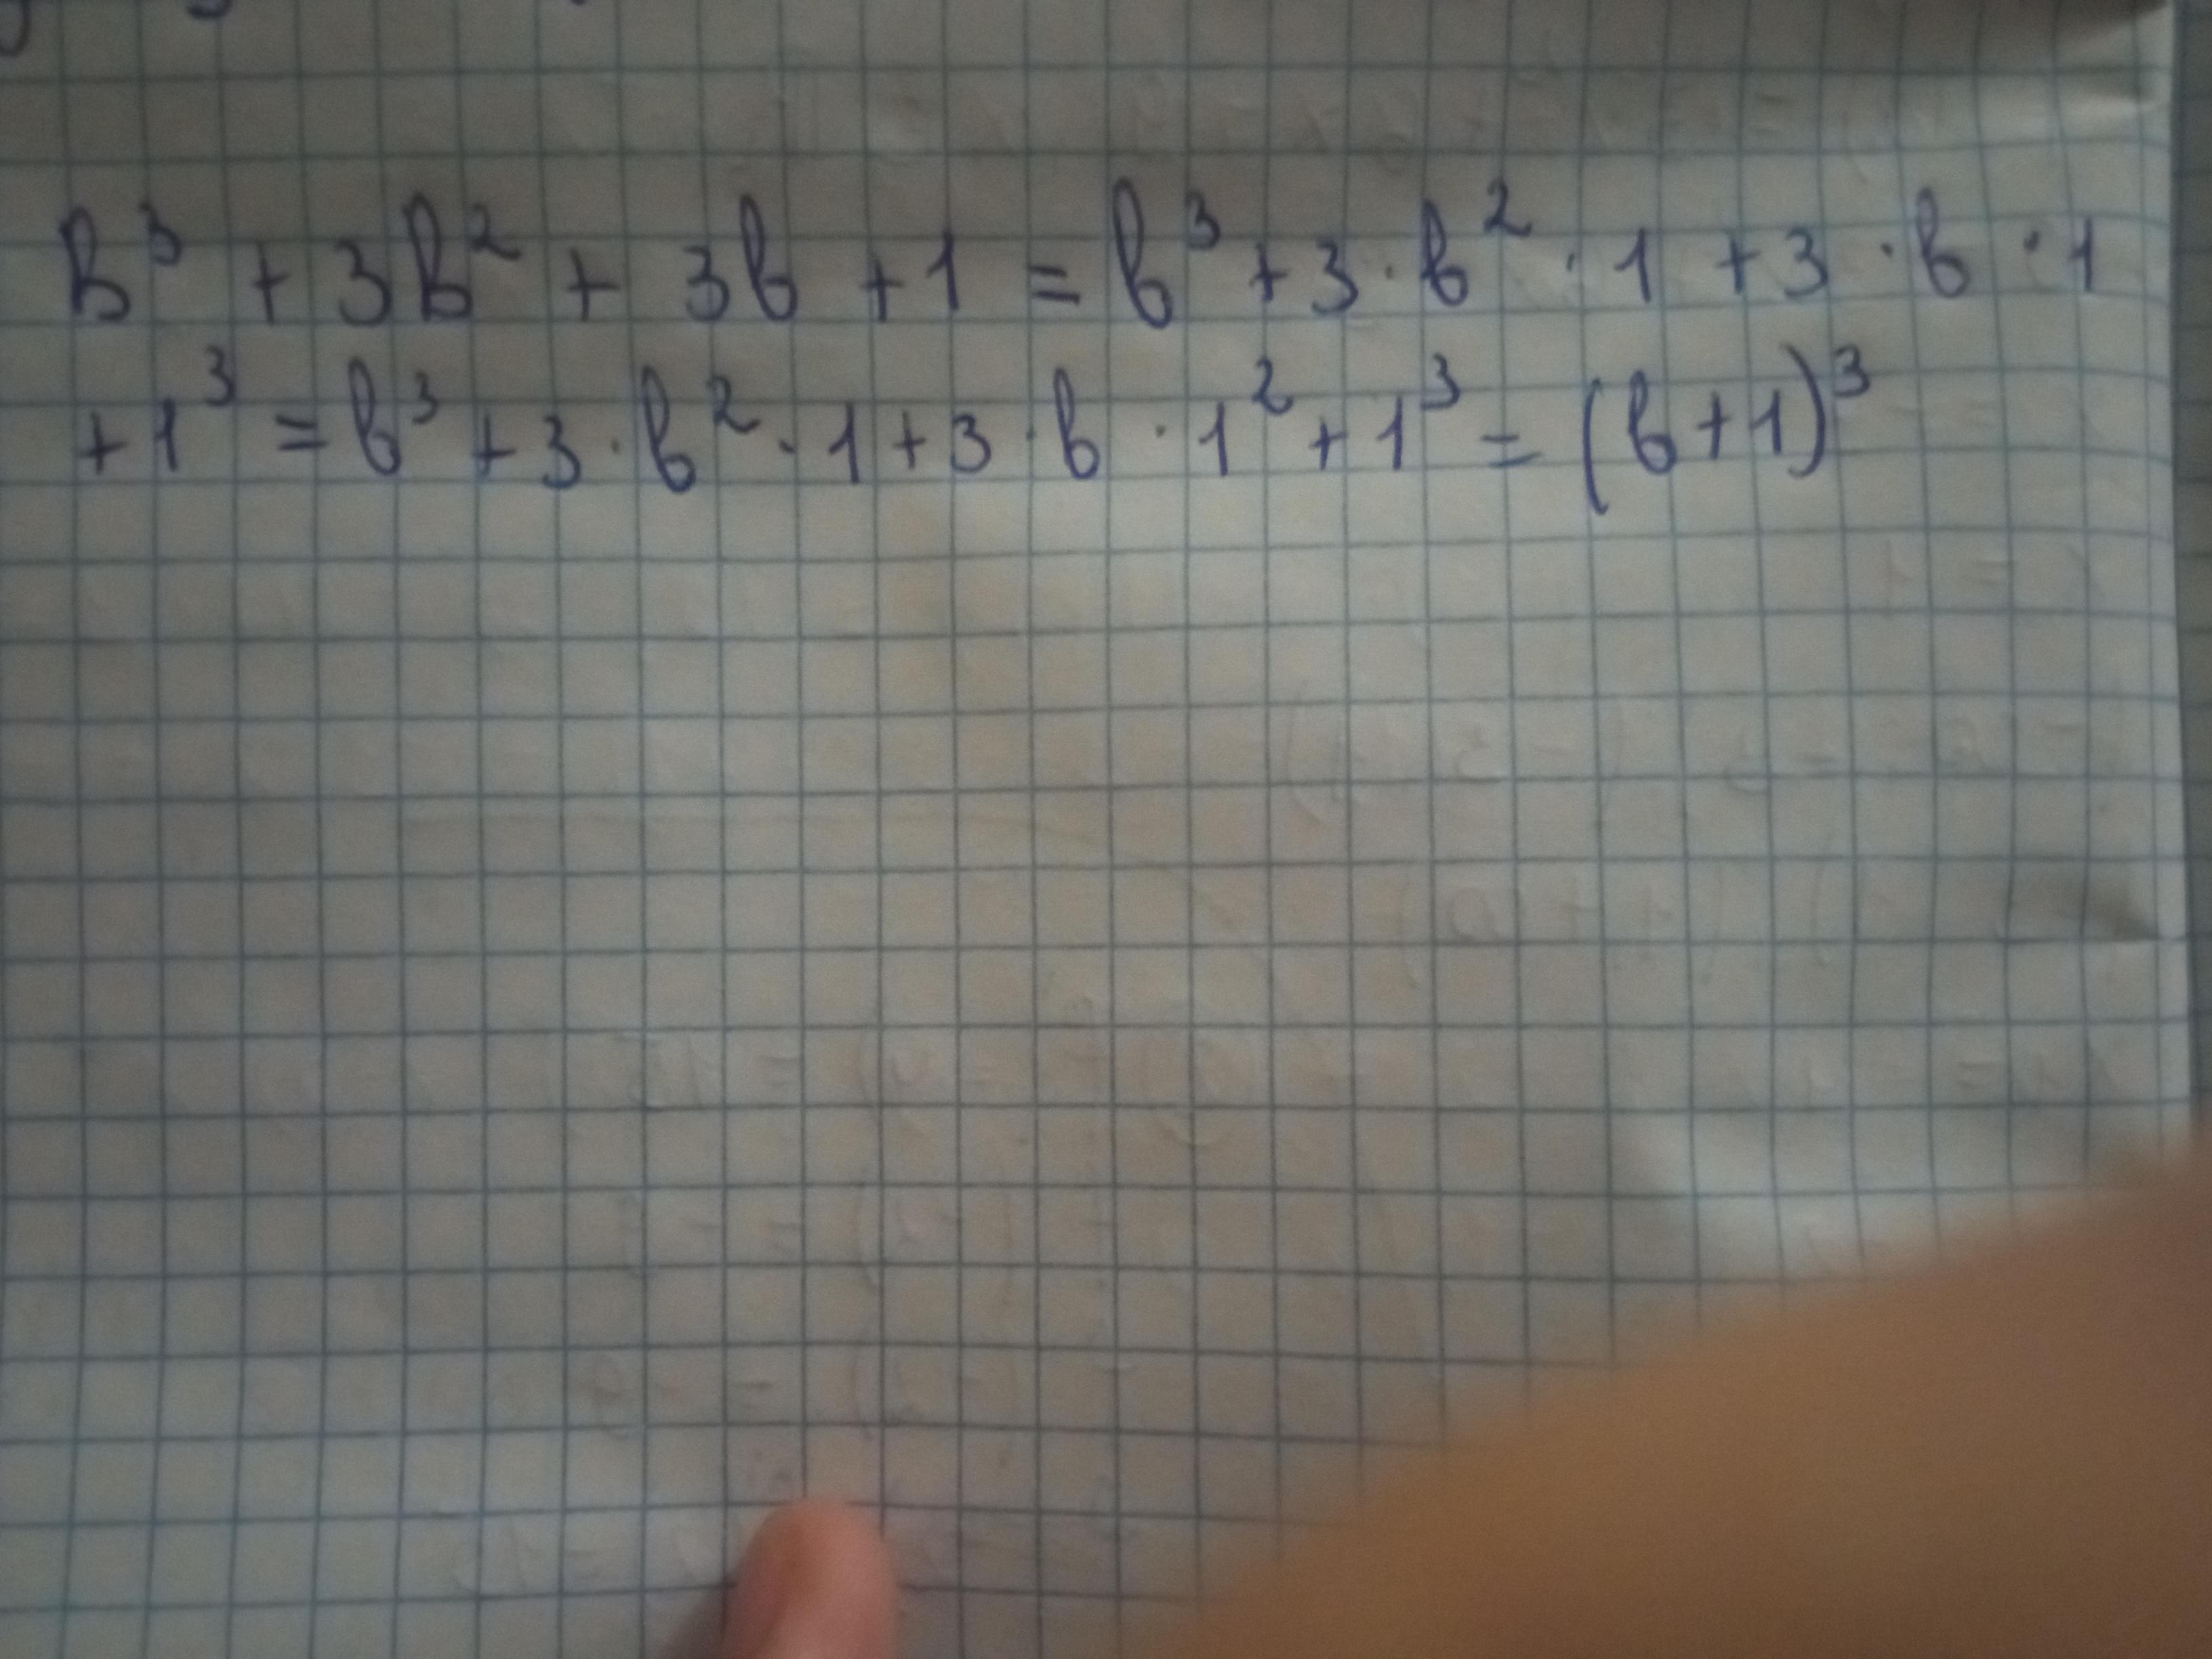 b³ + 3b² + 3b + 1 = b³ + 3 · b² · 1 + 3 · b · 1
+ 1³ = b³ + 3 · b² · 1 + 3 · b · 1² + 1³ = (b + 1)³